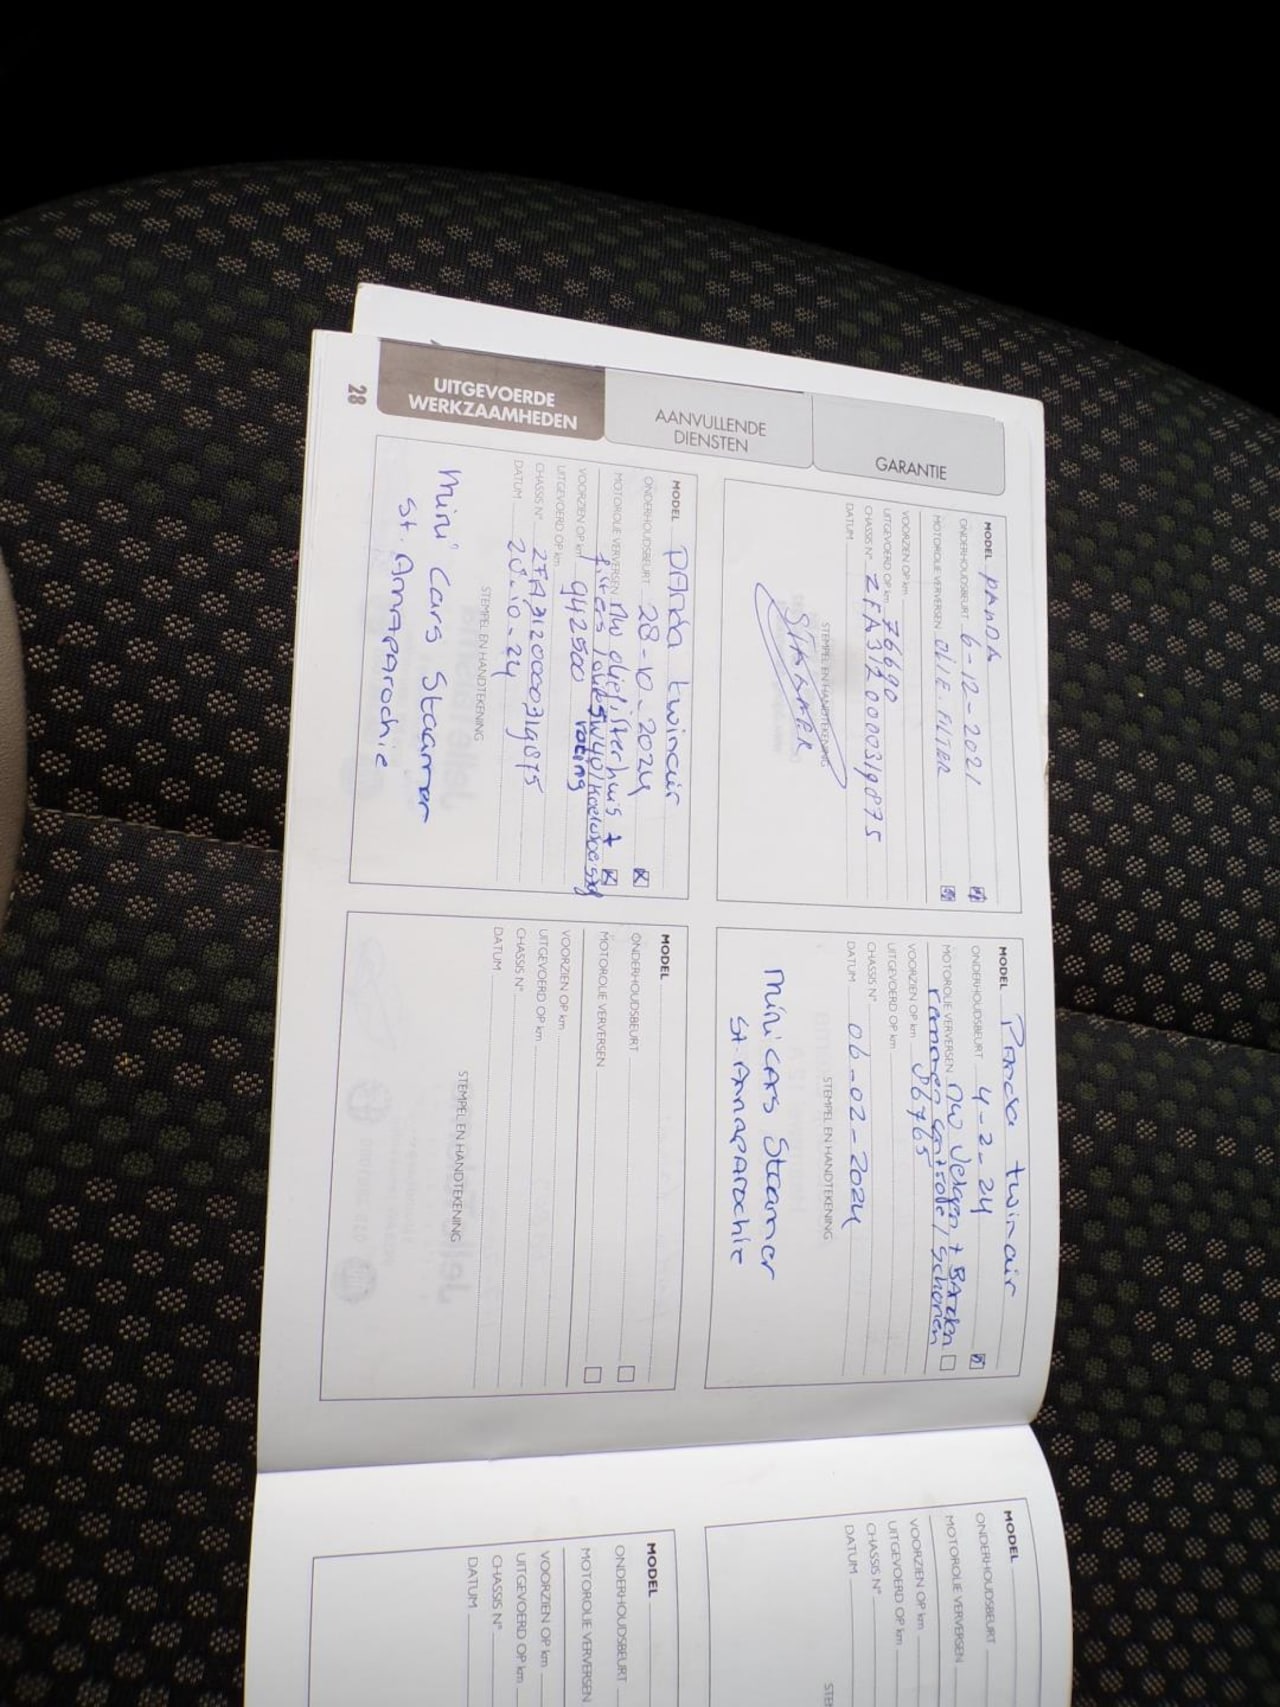 GARANTIE
AANVULLENDE
DIENSTEN
UITGEVOERDE
WERKZAAMHEDEN
28
MODEL PANDA
ONDERHOUDSBEURT 6-12-2021
MOTOROLIE VERVERSEN OLIE. FILTER
VOORZIEN OP km
UITGEVOERD OP km 76690
CHASSIS N° ZFA3120000319875
DATUM
STEMPEL EN HANDTEKENING
STAAMER
MODEL Panda twinair
ONDERHOUDSBEURT 4-2-24
MOTOROLIE VERVERSEN nw Velgen + BAnden
remmen controle, schonen
VOORZIEN OP km 86765
UITGEVOERD OP km
CHASSIS N°
DATUM 06-02-2024
STEMPEL EN HANDTEKENING
mini CArs Staamer
St. AnnAPArochie
MODEL PANda twinair
ONDERHOUDSBEURT 28-10-2024
MOTOROLIE VERVERSEN nw oliefilterhuis +
filters 5W40 koelvloeistof
VOORZIEN OP km 942500 racing
UITGEVOERD OP km
CHASSIS N° ZFA3120000319875
DATUM 28-10-24
STEMPEL EN HANDTEKENING
mini Cars Staamer
St. AnnAPArochie
MODEL
ONDERHOUDSBEURT
MOTOROLIE VERVERSEN
VOORZIEN OP km
UITGEVOERD OP km
CHASSIS N°
DATUM
STEMPEL EN HANDTEKENING
MODEL
ONDERHOUDSBEURT
MOTOROLIE VERVERSEN
VOORZIEN OP km
UITGEVOERD OP km
CHASSIS N°
DATUM
MODEL
ONDERHOUDSBEURT
MOTOROLIE VERVERSEN
VOORZIEN OP km
UITGEVOERD OP km
CHASSIS N°
DATUM